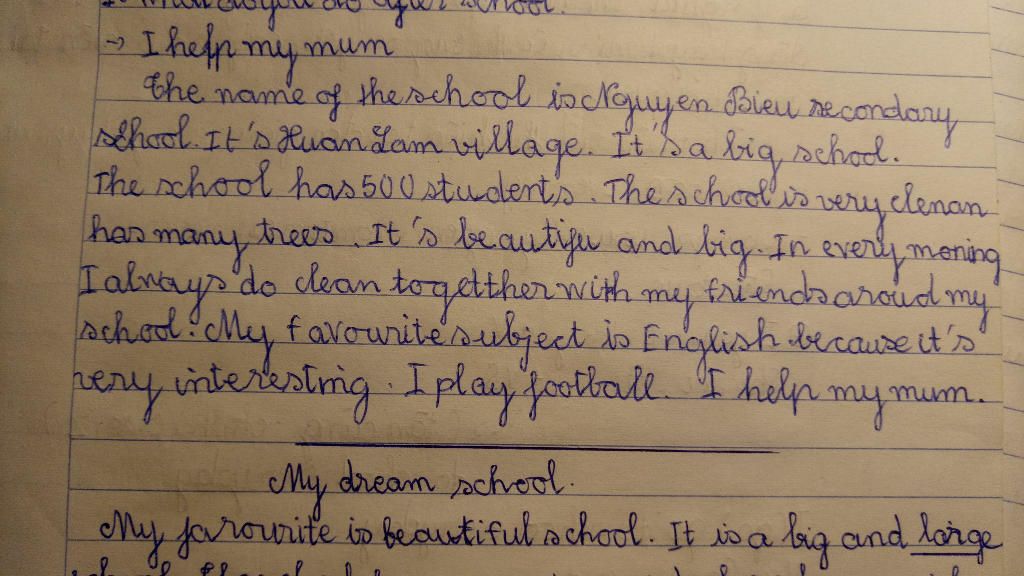 do you do after school.
→ I help my mum
The name of the school is Nguyen Bieu secondary
school. It's Xuan Lam village. It's a big school.
The school has 500 students. The school is very clenan
has many trees. It's beautifu and big. In every moning
I always do clean togetther with my friends aroud my
school. My favourite subject is English because it's
very interesting. I play football. I help my mum.
My dream school.
My favourite is beautiful school. It is a big and large